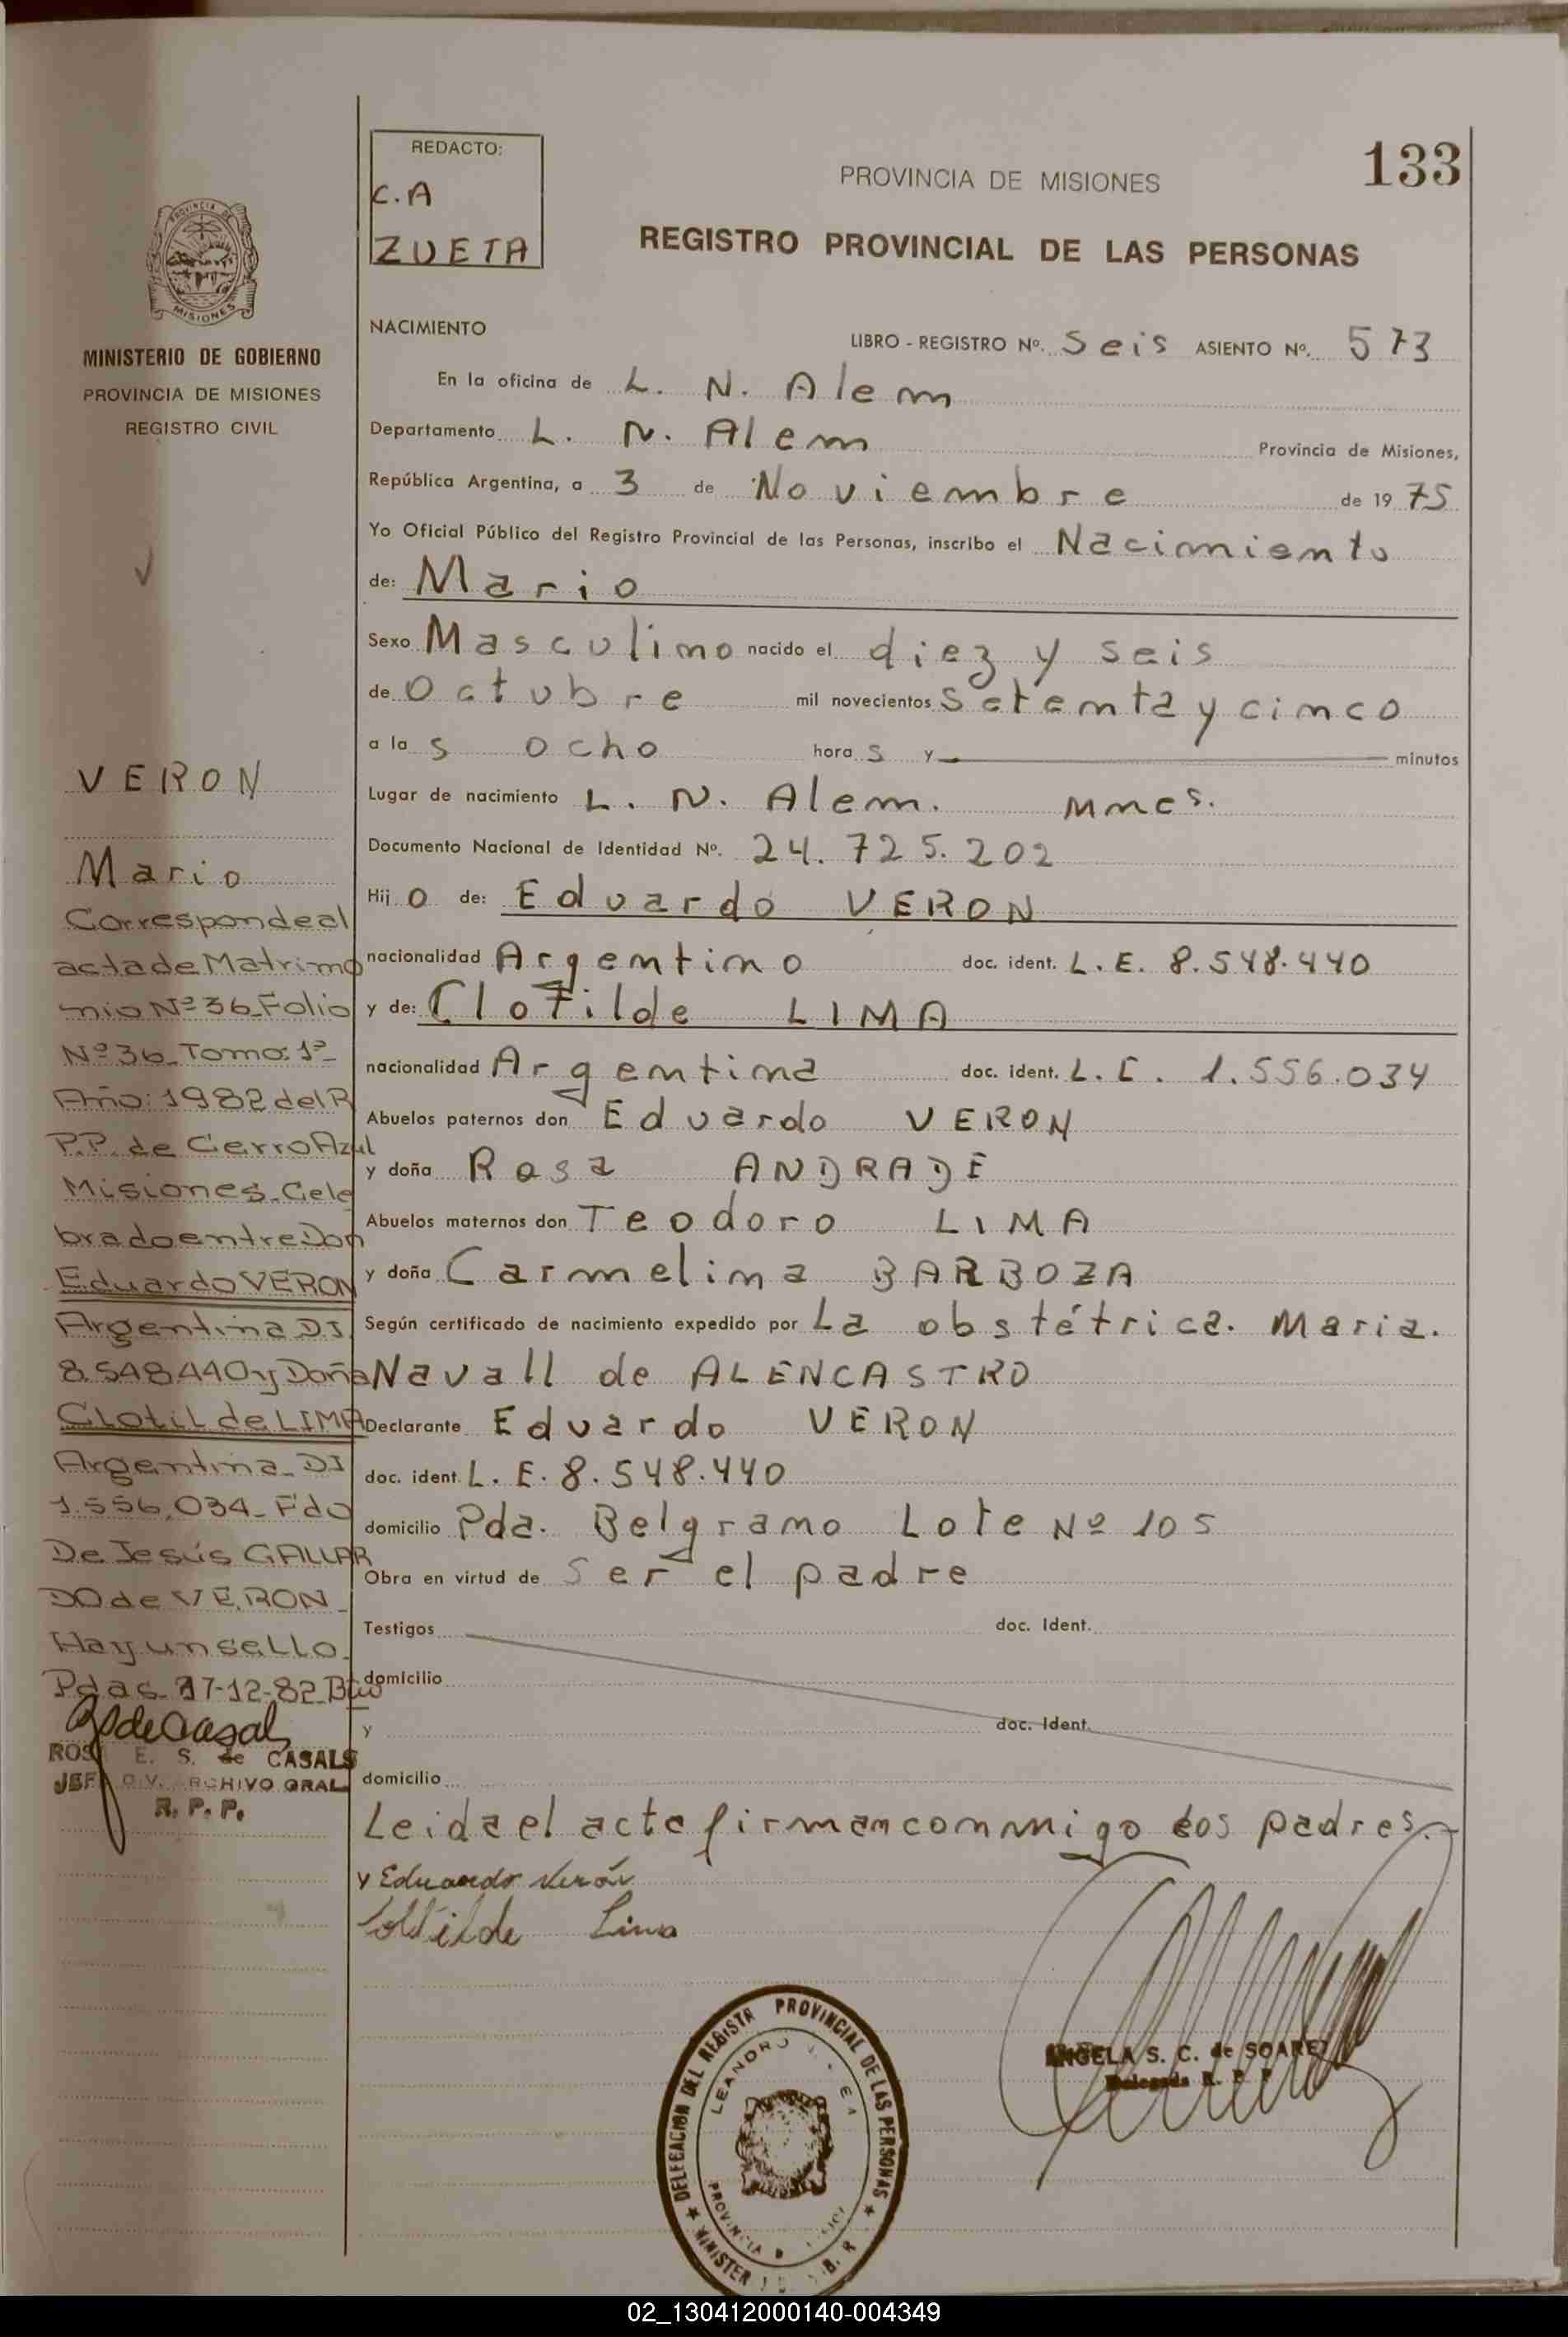 133
REDACTO:
C.A
ZUETA
PROVINCIA DE MISIONES
REGISTRO PROVINCIAL DE LAS PERSONAS
PROVINCIA DE
MISIONES
MINISTERIO DE GOBIERNO
PROVINCIA DE MISIONES
REGISTRO CIVIL
VERON
Mario
Corresponde al
acta de Matrimo
nio Nº 36 Folio
Nº 36 Tomo: 1º
Año: 1982 del R
P.P. de Cerro Azul
Misiones. Cele
brado entre Don
Eduardo VERON
Argentina D.I.
8.548440 y Doña
Clotilde LIMA
Argentina D I
1.556.034- Fdo
De Jesús GALLAR
DO de VERON
Hay un sello.
Pdas. 17-12-82
E. S. de CASALS
ARCHIVO GRAL
R. P. P.
NACIMIENTO
LIBRO - REGISTRO Nº. Seis ASIENTO Nº. 573
En la oficina de L. N. Alem
Departamento L. N. Alem Provincia de Misiones,
República Argentina, a 3 de Noviembre de 19 75
Yo Oficial Público del Registro Provincial de las Personas, inscribo el Nacimiento
de: Mario
Sexo Masculino nacido el diez y seis
de Octubre mil novecientos setenta y cinco
a la s ocho hora s y minutos
Lugar de nacimiento L. N. Alem. Mnes.
Documento Nacional de Identidad Nº. 24.725.202
Hij o de: Eduardo VERON
nacionalidad Argentino doc. ident. L.E. 8.548.440
y de: Clotilde LIMA
nacionalidad Argentina doc. ident. L.C. 1.556.034
Abuelos paternos don Eduardo VERON
y doña Rosa ANDRADE
Abuelos maternos don Teodoro LIMA
y doña Carmelina BARBOZA
Según certificado de nacimiento expedido por La obstétrica. Maria.
Navall de ALENCASTRO
Declarante Eduardo VERON
doc. ident. L.E. 8.548.440
domicilio Pda. Belgrano Lote Nº 105
Obra en virtud de ser el padre
Testigos doc. Ident.
domicilio
y doc. Ident.
domicilio
Leida el acta firman conmigo los padres.
y Eduardo Verón
Clotilde Lima
ANGELA S. C. de SOAREZ
Delegada R. P. P
DELEGACION DEL REGISTR PROVINCIAL DE LAS PERSONAS
LEANDRO
PROVINCIA
02_130412000140-004349